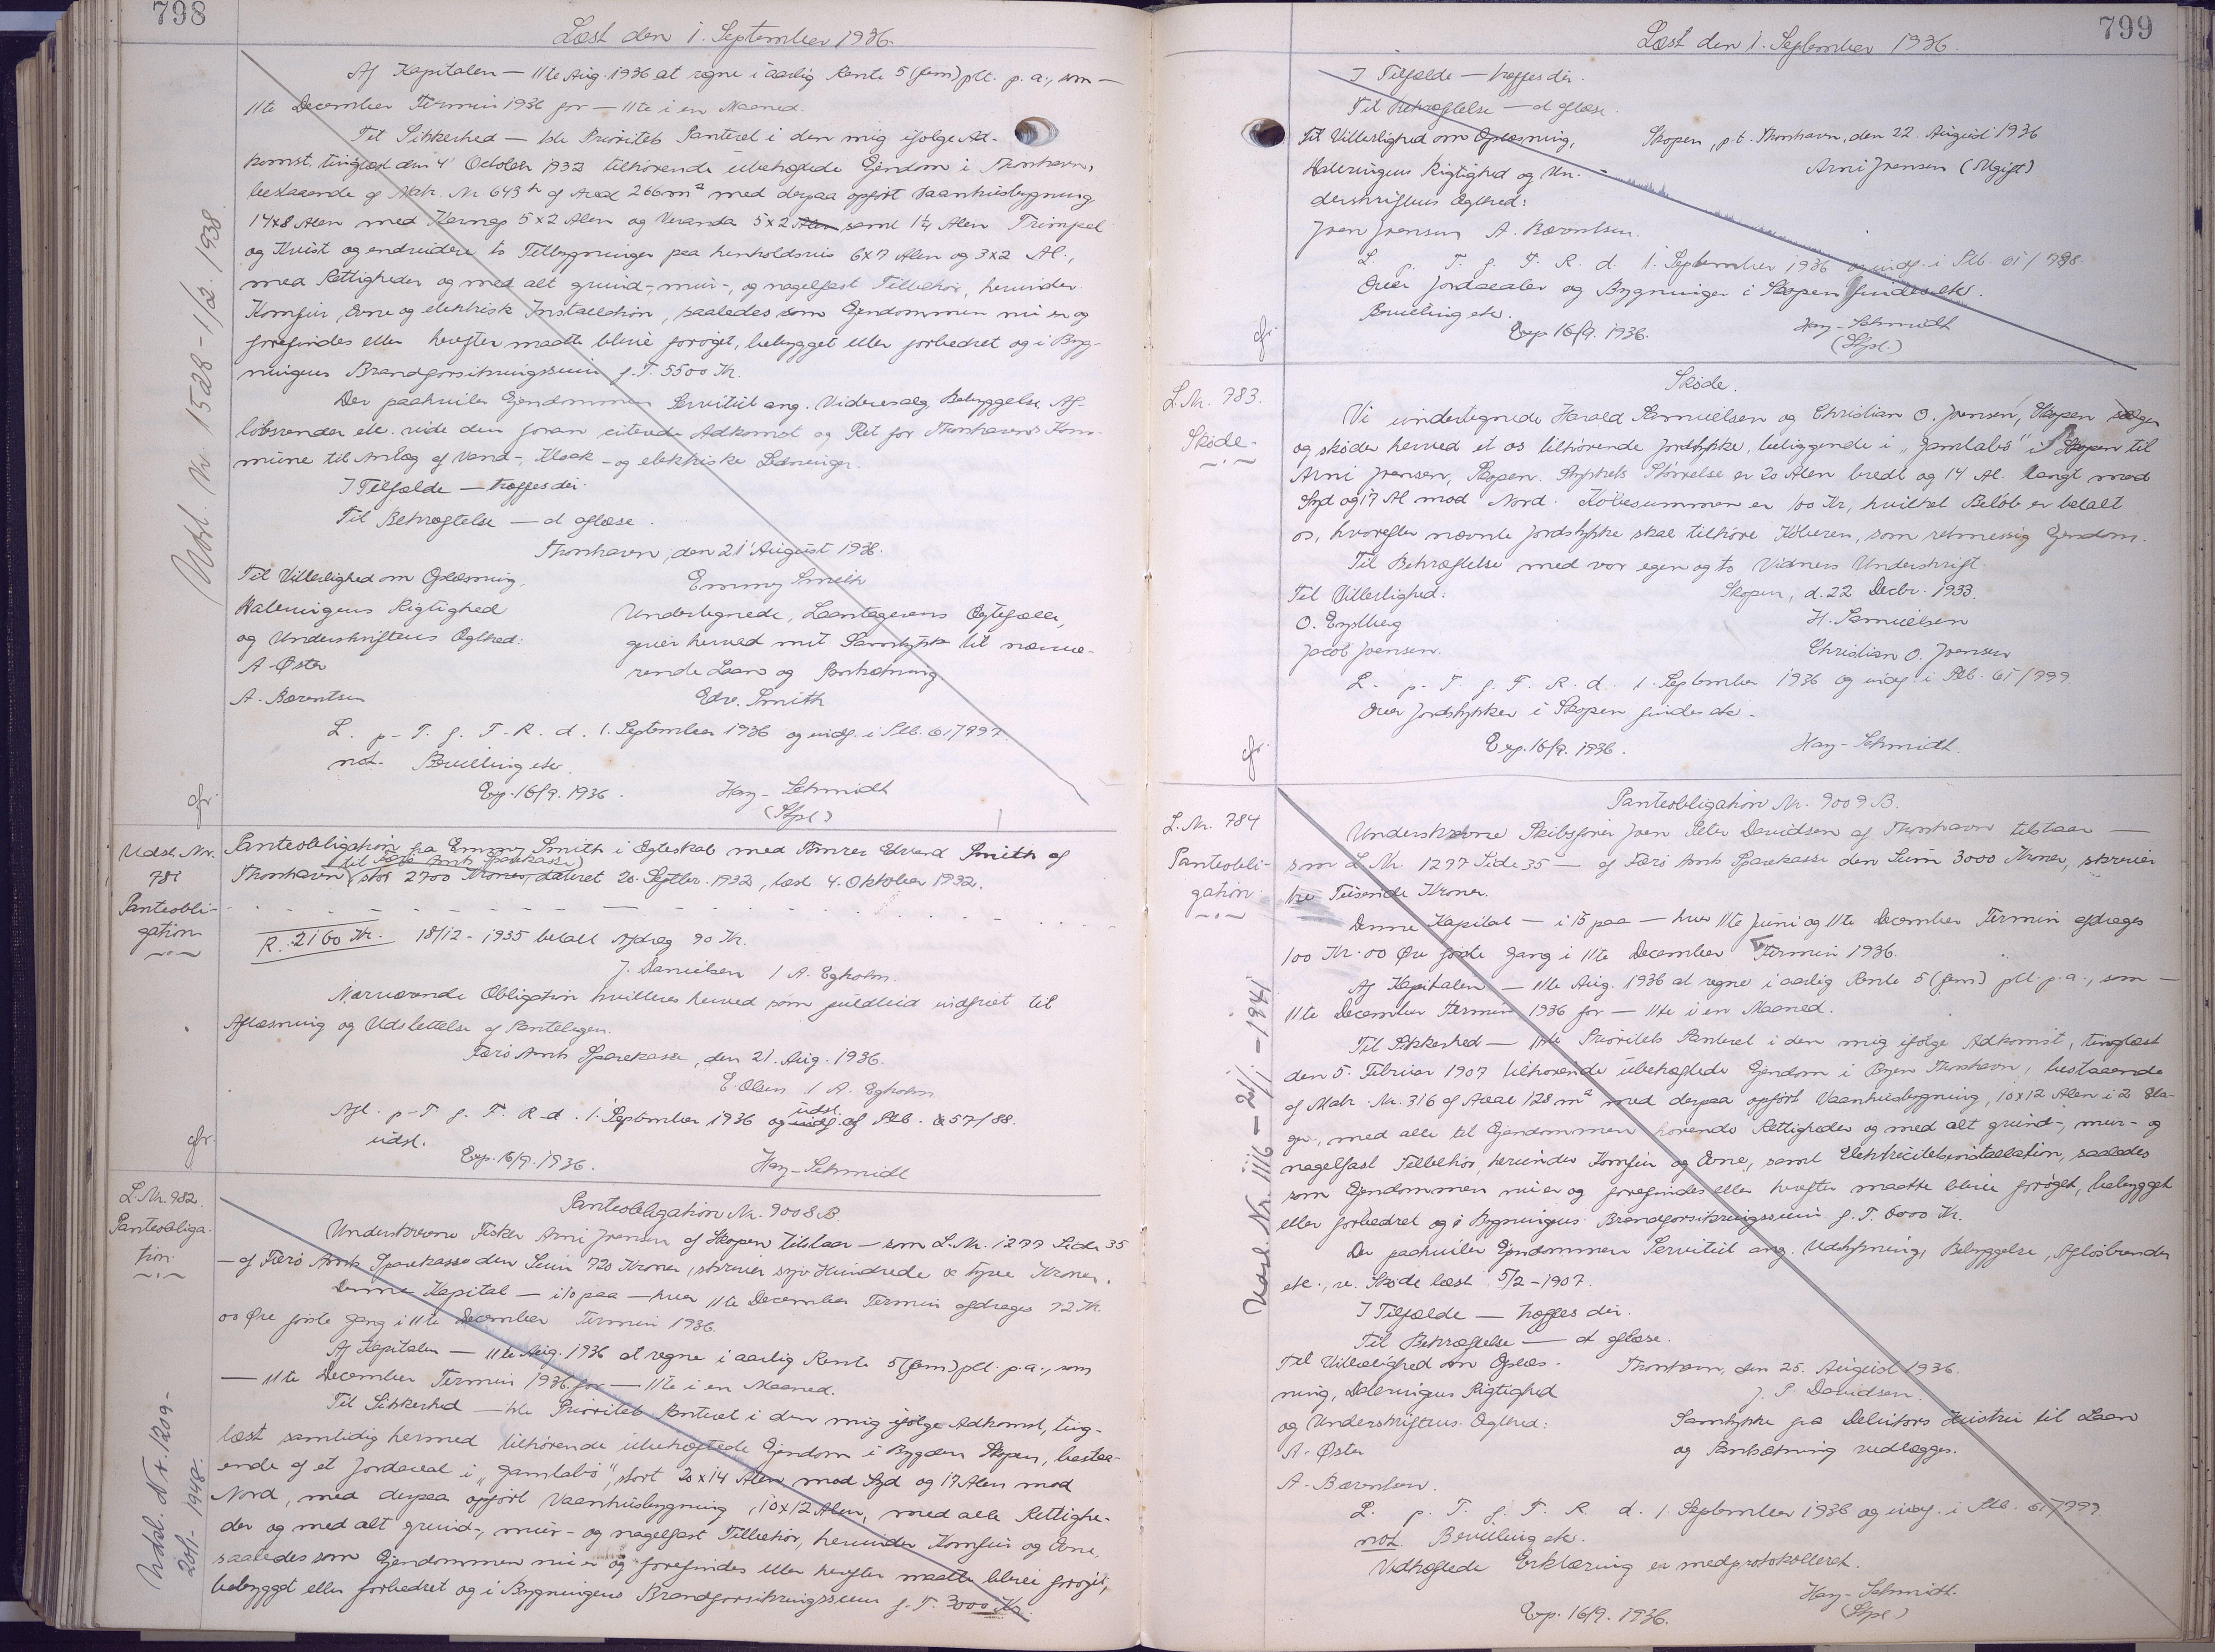 798
Læst den 1. September 1936.
Af Kapitalen — 11te Aug. 1936 at regne i aarlig Rente 5 (fem) pCt. p.a., som —
11te December Termin 1936 for — 11te i en Maaned.
Til Sikkerhed — 1ste Prioritets Panteret i den mig ifølge Ad-
komst, tinglæst den 4' October 1932 tilhørende ubehæftede Ejendom i Thorshavn,
bestaaende af Matr. Nr. 643 h af Areal 266 m² med derpaa opført Vaanhusbygning
14x8 Alen med Karnap 5x2 Alen og Veranda 5x2 Alen samt 1¼ Alen Trimpel
og Kvist og endvidere to Tilbygninger paa henholdsvis 6x7 Alen og 3x2 Al.,
med Rettigheder og med alt grund-, mur-, og nagelfast Tilbehør, herunder
Komfur, Ovne og elektrisk Installation, saaledes som Ejendommen nu er og
forefindes eller herefter maatte blive forøget, bebygget eller forbedret og i Byg-
ningens Brandforsikringssum f.T. 5500 Kr.
Der paahviler Ejendommen Servitut ang. Videresalg, Bebyggelse, Af-
løbsrender etc. vide den foran citerede Adkomst og Ret for Thorshavns Kom-
mune til Anlæg af Vand-, Kloak- og elektriske Ledninger.
I Tilfælde — træffes der.
Til Bekræftelse — at aflæse.
Thorshavn, den 21' August 1936.
Til Vitterlighed om Oplæsning,
Emmy Smith
Dateringens Rigtighed
Undertegnede, Laantagerens Ægtefælle,
og Underskriftens Ægthed:
giver herved mit Samtykke til nærvæ-
A. Øster
rende Laan og Pantsætning
A. Bærentsen
Edv. Smith
L. p. T. f. F. R. d. 1. September 1936 og indf. i Plb. 61/797.
not. Bevilling etc.
Exp. 16/9. 1936.
Hay-Schmidt
(Stpl.)
cfr.
Udsl. Nr. 1528 - 1/2. 1938.
Udsl. Nr.
781
Panteobli-
gation
Panteobligation fra Emmy Smith i Ægteskab med Tømrer Edvard Smith af
til Færø Amts Sparekasse
Thorshavn stor 2700 Kroner, dateret 20. Septbr. 1932, læst 4. Oktober 1932.
R. 2160 Kr. 18/12 - 1935 betalt Afdrag 90 Kr.
J. Danielsen / A. Egholm.
Nærværende Obligation kvitteres herved som fuldtud indfriet til
Aflæsning og Udslettelse af Pantebogen.
Færø Amts Sparekasse, den 21. Aug. 1936.
E. Olsen / A. Egholm.
Afl. p. T. f. F. R. d. 1. September 1936 og indf. udsl. af Plb. 57/88.
udsl.
Exp. 16/9. 1936.
Hay-Schmidt
cfr.
L. Nr. 782.
Panteobliga-
tion
Panteobligation Nr. 9008 B.
Underskrevne Fisker Arni Joensen af Skopen tilstaar — som L. Nr. 1277 Side 35
— af Færø Amts Sparekasse den Sum 720 Kroner, skriver syv Hundrede og tyve Kroner.
Denne Kapital — i 10 paa — hver 11te December Termin afdrages 72 Kr.
00 Øre første Gang i 11te December Termin 1936.
Af Kapitalen — 11te Aug. 1936 at regne i aarlig Rente 5 (fem) pCt. p.a., som
— 11te December Termin 1936 for — 11te i en Maaned.
Til Sikkerhed — 1ste Prioritets Panteret i den mig ifølge Adkomst, ting-
læst samtidig hermed tilhørende ubehæftede Ejendom i Bygden Skopen, bestaa-
ende af et Jordareal i „Gamlabø", stort 20x14 Alen mod Syd og 17 Alen mod
Nord, med derpaa opført Vaanhusbygning, 10x12 Alen, med alle Rettighe-
der og med alt grund-, mur- og nagelfast Tilbehør, herunder Komfur og Ovne,
saaledes som Ejendommen nu er og forefindes eller herefter maatte blive forøget,
bebygget eller forbedret og i Bygningens Brandforsikringssum f.T. 3000 Kr.
Udsl. Nr. 1209 -
20/1 - 1948.
799
Læst den 1. September 1936.
I Tilfælde — træffes der.
Til Bekræftelse — at aflæse.
Til Vitterlighed om Oplæsning,
Skopen, p.t. Thorshavn, den 22. August 1936
Dateringens Rigtighed og Un-
Arni Joensen (Ugift)
derskriftens Ægthed:
Joen Joensen A. Bærentsen.
L. p. T. f. F. R. d. 1. September 1936 og indf. i Plb. 61/798.
Over Jordarealer og Bygninger i Skopen findes etc.
Bevilling etc.
Exp. 16/9. 1936.
Hay-Schmidt
(Stpl.)
cfr.
L. Nr. 783.
Skøde.
Skøde.
Vi undertegnede Harald Samuelsen og Christian O. Joensen, Skopen sælger
og skøder herved et os tilhørende Jordstykke, beliggende i „Gamlabø" i Skopen til
Arni Joensen, Skopen. Stykkets Størrelse er 20 Alen bredt og 14 Al. langt mod
Syd og 17 Al mod Nord. Købesummen er 100 Kr, hvilket Beløb er betalt
os, hvorefter nævnte Jordstykke skal tilhøre Køberen, som retmessig Ejendom.
Til Bekræftelse med vor egen og to Vidners Underskrift.
Til Vitterlighed:
Skopen, d. 22 Decbr. 1933.
O. Enghberg
H. Samuelsen
Jacob Joensen.
Christian O. Joensen
L. p. T. f. F. R. d. 1. September 1936 og indf. i Plb. 61/799
Over Jordstykker i Skopen findes etc.
Exp. 16/9. 1936.
Hay-Schmidt.
cfr.
L. Nr. 784
Panteobli-
gation
Panteobligation Nr. 9009 B.
Underskrevne Skibsfører Joen Peter Davidsen af Thorshavn tilstaar —
som L. Nr. 1277 Side 35 — af Færø Amts Sparekasse den Sum 3000 Kroner, skriver
tre Tusende Kroner.
Denne Kapital — i 15 paa — hver 11te Juni og 11te December Termin afdrages
100 Kr. 00 Øre første Gang i 11te December Termin 1936.
Af Kapitalen — 11te Aug. 1936 at regne i aarlig Rente 5 (fem) pCt. p.a., som —
11te December Termin 1936 for — 11te i en Maaned.
Til Sikkerhed — 1ste Prioritets Panteret i den mig ifølge Adkomst, tinglæst
den 5. Februar 1907 tilhørende ubehæftede Ejendom i Byen Thorshavn, bestaaende
af Matr. Nr. 316 af Areal 128 m² med derpaa opført Vaanhusbygning, 10x12 Alen i 2 Eta-
ger, med alle til Ejendommen hørende Rettigheder og med alt grund-, mur- og
nagelfast Tilbehør, herunder Komfur og Ovne, samt Elektricitetsinstallation, saaledes
som Ejendommen nu er og forefindes eller herefter maatte blive forøget, bebygget
eller forbedret og i Bygningens Brandforsikringssum f.T. 6000 Kr.
Der paahviler Ejendommen Servitut ang. Udstykning, Bebyggelse, Afløbsrender
etc., v. Skøde læst 5/2 - 1907.
I Tilfælde — træffes der.
Til Bekræftelse — at aflæse.
Til Vitterlighed om Oplæs-
Thorshavn, den 25. August 1936.
ning, Dateringens Rigtighed
J. P. Davidsen.
og Underskriftens Ægthed:
Samtykke fra Debitors Hustru til Laan
A. Øster
og Pantsætning vedlægges.
A. Bærentsen.
L. p. T. f. F. R. d. 1. September 1936 og indf. i Plb. 61/799
not. Bevilling etc.
Vedhæftede Erklæring er medprotokolleret.
Hay-Schmidt.
(Stpl.)
Exp. 16/9. 1936.
Udsl. Nr. 1116 - 20/1. - 1941